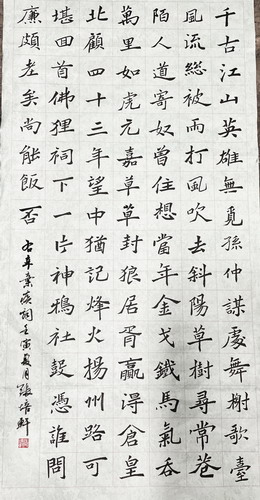 千古江山英雄無覓孫仲謀處舞榭歌臺
風流總被雨打風吹去斜陽草樹尋常巷
陌人道寄奴曾住想當年金戈鐵馬氣吞
萬里如虎元嘉草草封狼居胥贏得倉皇
北顧四十三年望中猶記烽火揚州路可
堪回首佛狸祠下一片神鴉社鼓憑誰問
廉頗老矣尚能飯否
右辛棄疾詞壬寅夏月張軒